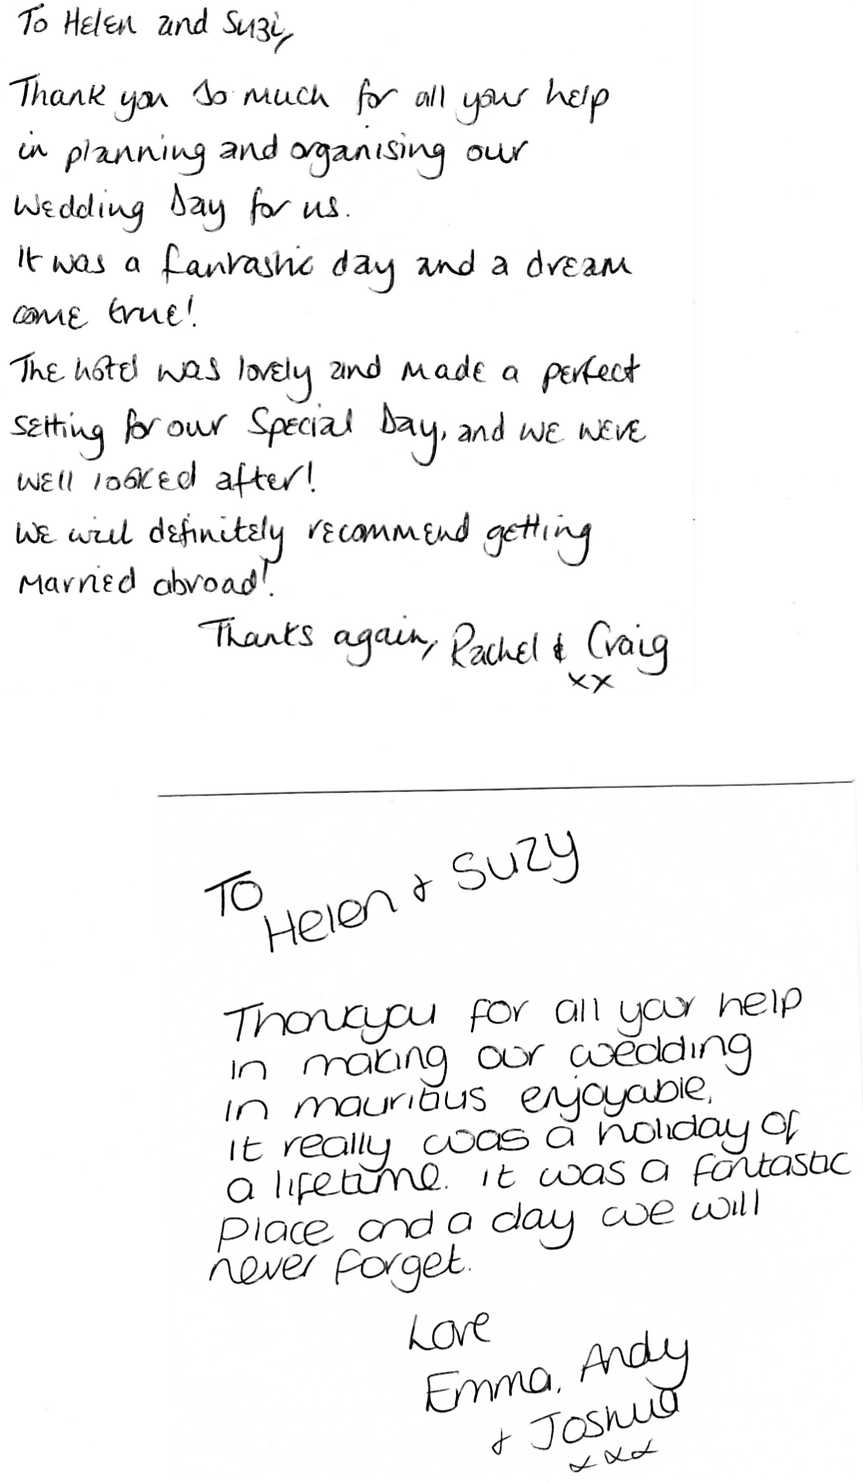 To Helen and Suzi,
Thank you so much for all your help
in planning and organising our
Wedding Day for us.
It was a fantastic day and a dream
come true!
The hotel was lovely and made a perfect
setting for our Special Day, and we were
well looked after!
We will definitely recommend getting
married abroad!
Thanks again, Rachel & Craig
xx
To
Helen & Suzy
Thankyou for all your help
in making our wedding
in mauritius enjoyable,
it really was a holiday of
a lifetime. it was a fantastic
place and a day we will
never forget.
Love
Emma, Andy
& Joshua
xxx